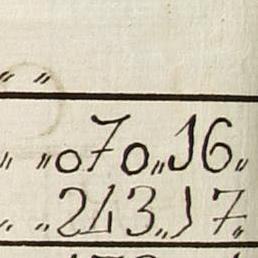 " "
" "070"16"
" "243"17"